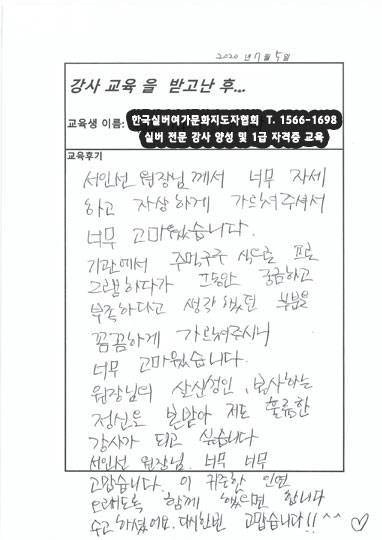 2020년 7월 5일
강사 교육 을 받고난 후...
교육생 이름:
한국실버여가문화지도자협회 T. 1566-1698
실버 전문 강사 양성 및 1급 자격증 교육
교육후기
서인선 원장님께서 너무 자세
하고 자상하게 가르쳐주셔서
너무 고마웠습니다.
기관에서 주먹구구 식으로 프로
그램하다가 그동안 궁금하고
부족하다고 생각했던 부분을
꼼꼼하게 가르쳐주시니
너무 고마웠습니다.
원장님의 살신성인, 봉사하는
정신을 본받아 저도 훌륭한
강사가 되고 싶습니다
서인선 원장님. 너무 너무
고맙습니다. 이 귀중한 인연
오래도록 함께 했으면 합니다
수고하셨어요. 다시한번 고맙습니다!! ^^ ♡